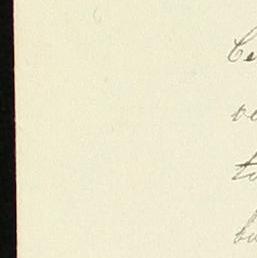 Ce
ve
to
bu